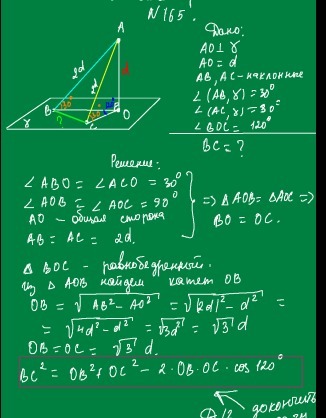 N 165.
A
2d
2d
d
30°
30°
120°
B
C
O
?
γ
Дано:
AO ⊥ γ
AO = d
AB, AC - наклонные
∠(AB, γ) = 30°
∠(AC, γ) = 30°
∠BOC = 120°
BC = ?
Решение:
∠ABO = ∠ACO = 30°
∠AOB = ∠AOC = 90°
AO - общая сторона
AB = AC = 2d.
=> △AOB = △AOC =>
BO = OC.
△BOC - равнобедренный.
Из △AOB найдем катет OB
OB = √AB² - AO² = √(2d)² - d² =
= √4d² - d² = √3d² = √3 d
OB = OC = √3 d.
BC² = OB² + OC² - 2·OB·OC·cos 120°
докончить